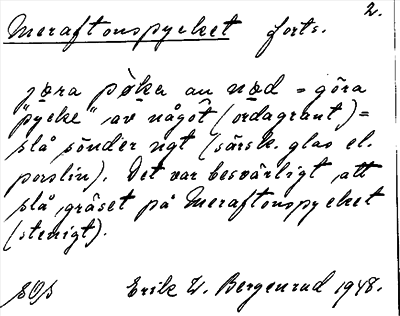 2.
Meraftonspycket forts.
jɷra pøka au nɷd = göra
"pycke" av något (ordagrant) =
slå sönder ngt (särsk. glas el.
porslin). Det var besvärligt att
slå gräset på Meraftonspycket
(stenigt).
SOS Erik W. Bergenrud 1948.